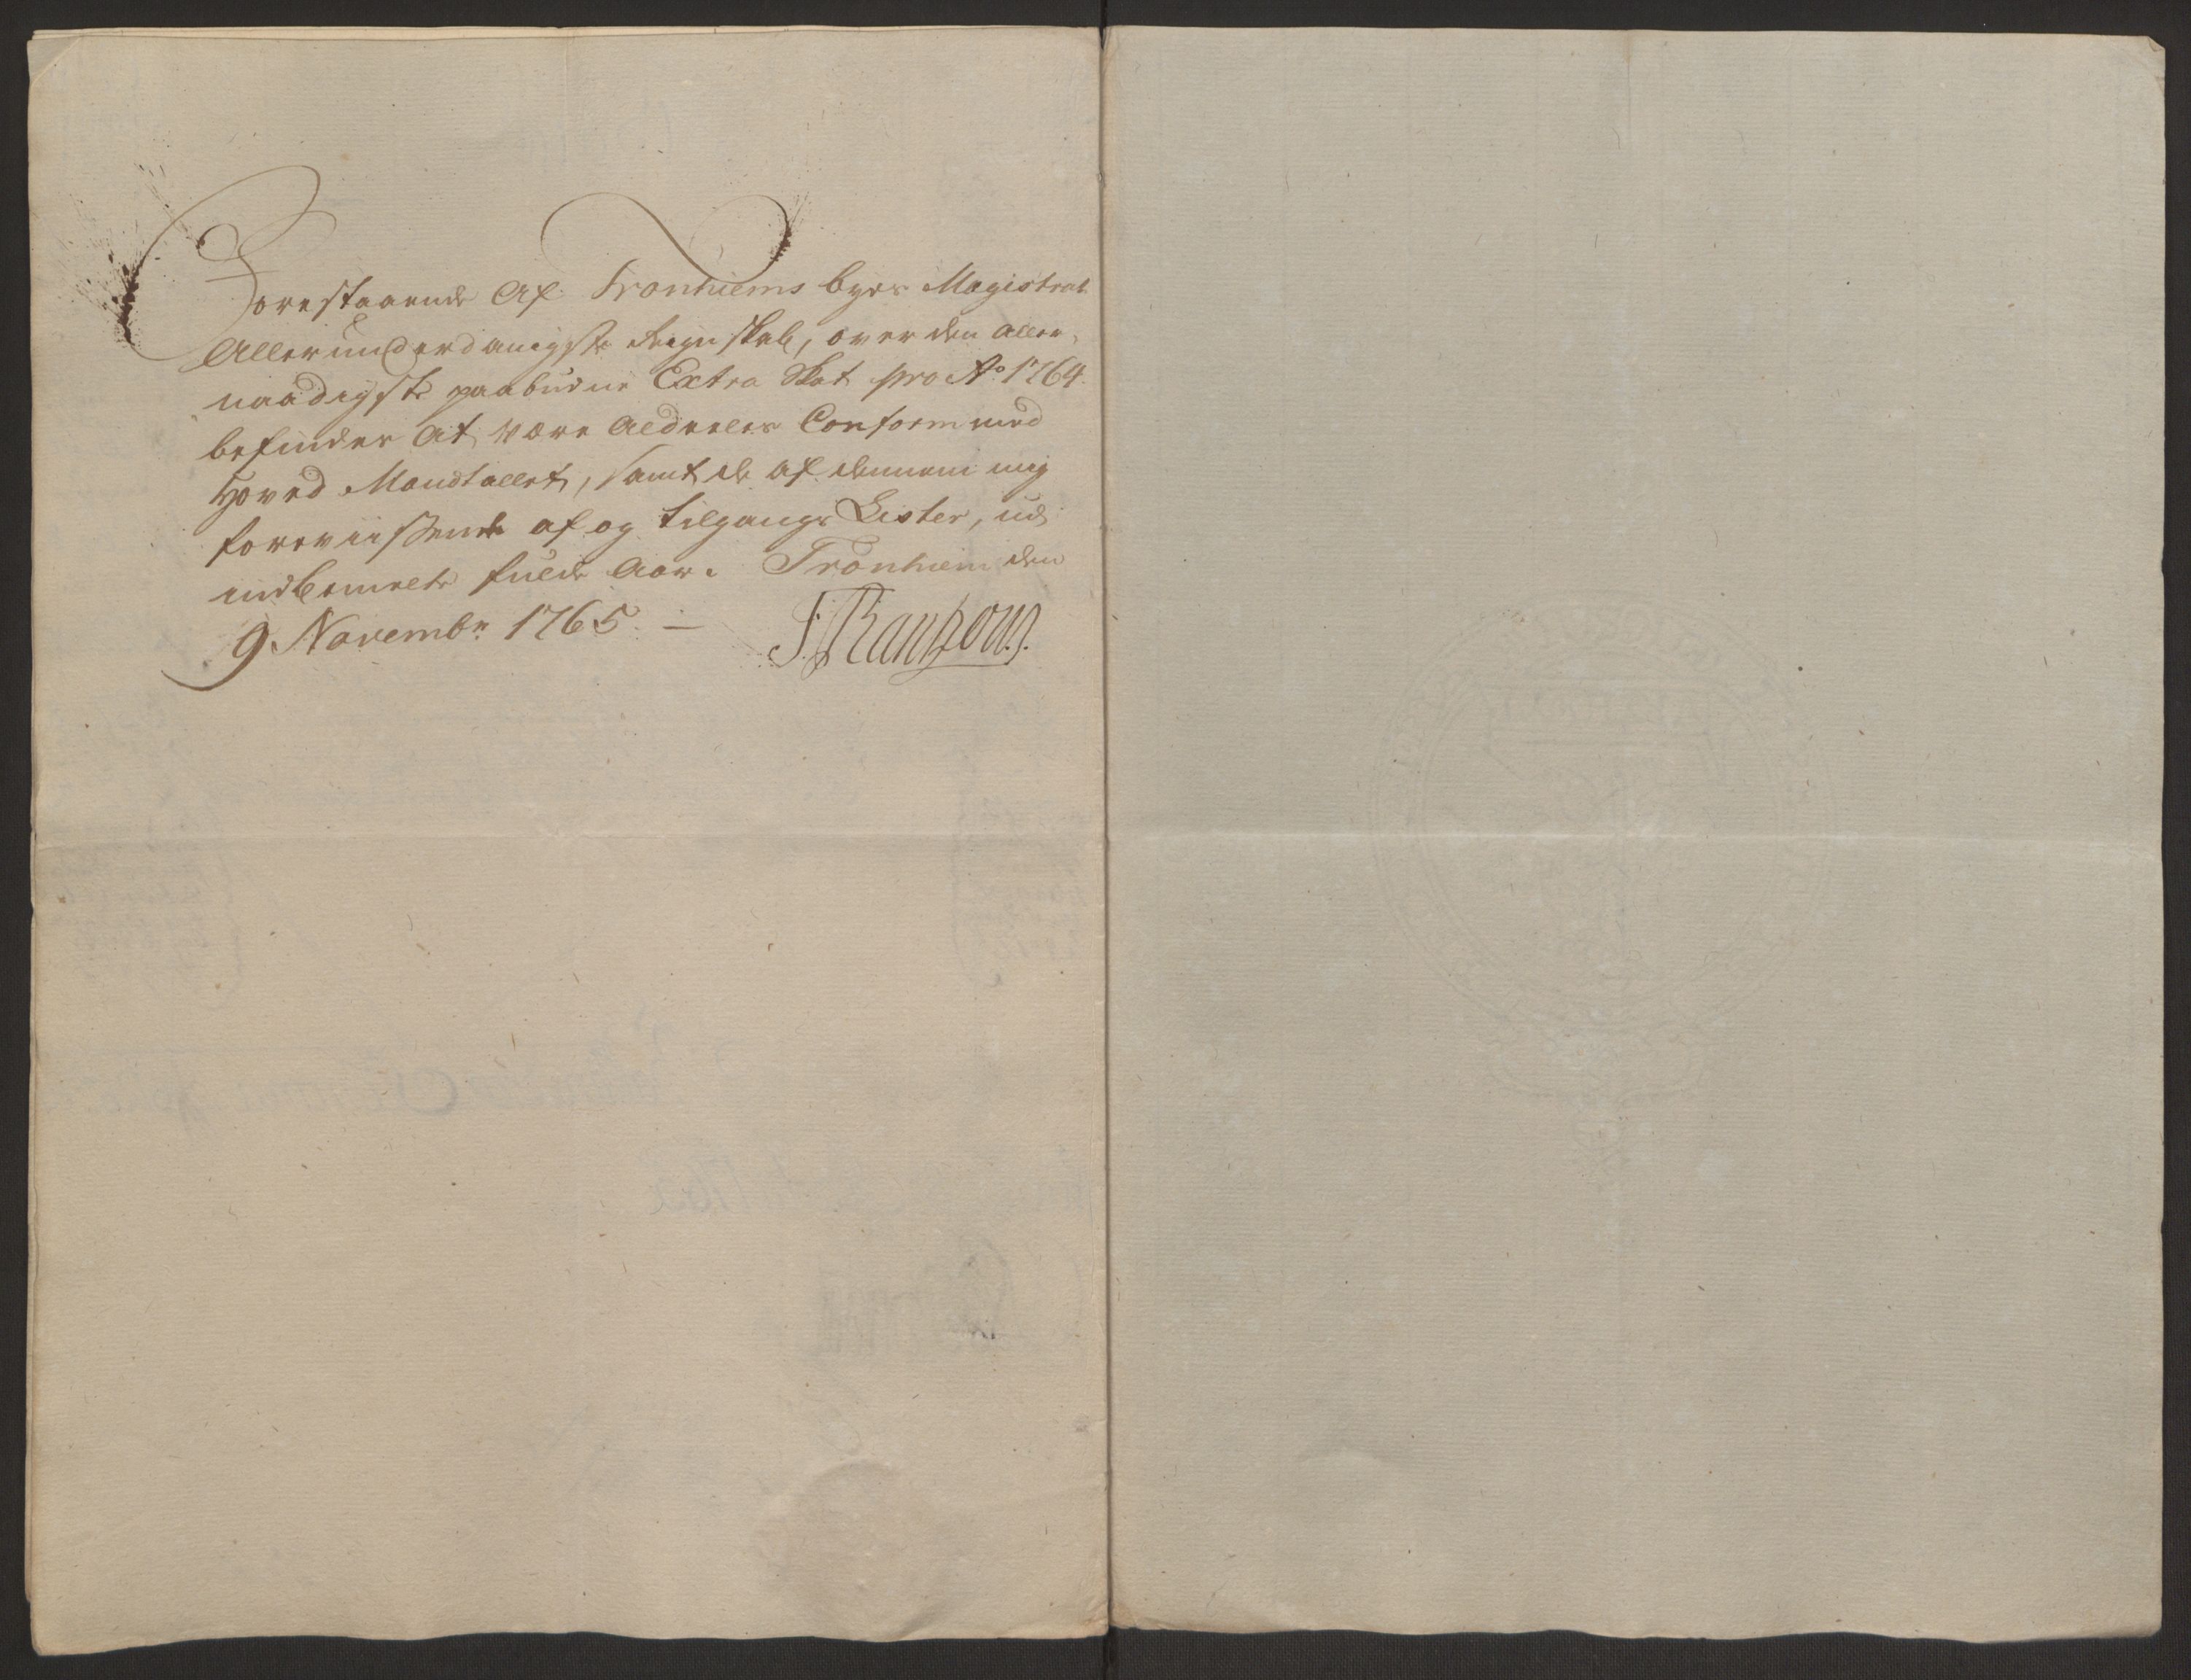 Forestaaende Af Tronhiems byes Magistrat
Allerunderdanigste Regnskab, over den Aller,
naadigste paabudne Extra Skat pro Ao 1764.
befindes At være Aldeeles Conform med
Hoved Mandtallet, samt de af dennem mig
foreviiste af og tilgangs Lister, ud
inbemelte fulde Aar. Tronhiem den
9 Novembr 1765. –
Rantzou